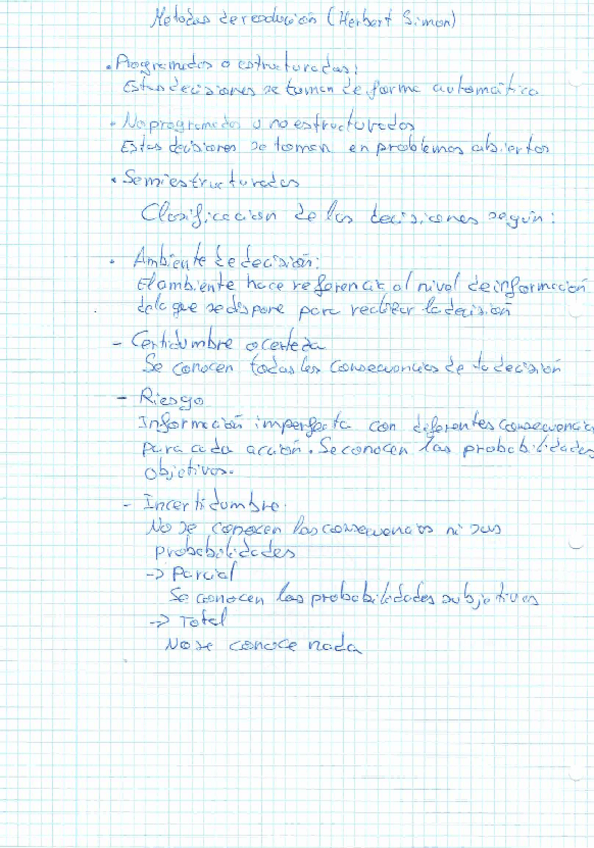 Metodos de resolución (Herbert Simon)
• Programadas o estructuradas:
Estas decisiones se toman de forma automática
• No programadas o no estructuradas
Estas decisiones se toman en problemas abiertos
• Semiestructuradas
Clasificacion de las decisiones según:
• Ambiente de decisión:
El ambiente hace referencia al nivel de información
de la que se dispone para realizar la decisión
- Certidumbre o certeza
Se conocen todas las consecuencias de la decisión
- Riesgo
Información imperfecta con diferentes consecuencias
para cada acción. Se conocen las probabilidades
objetivas.
- Incertidumbre.
No se conocen las consecuencias ni sus
probabilidades
-> Parcial
Se conocen las probabilidades subjetivas
-> Total
No se conoce nada